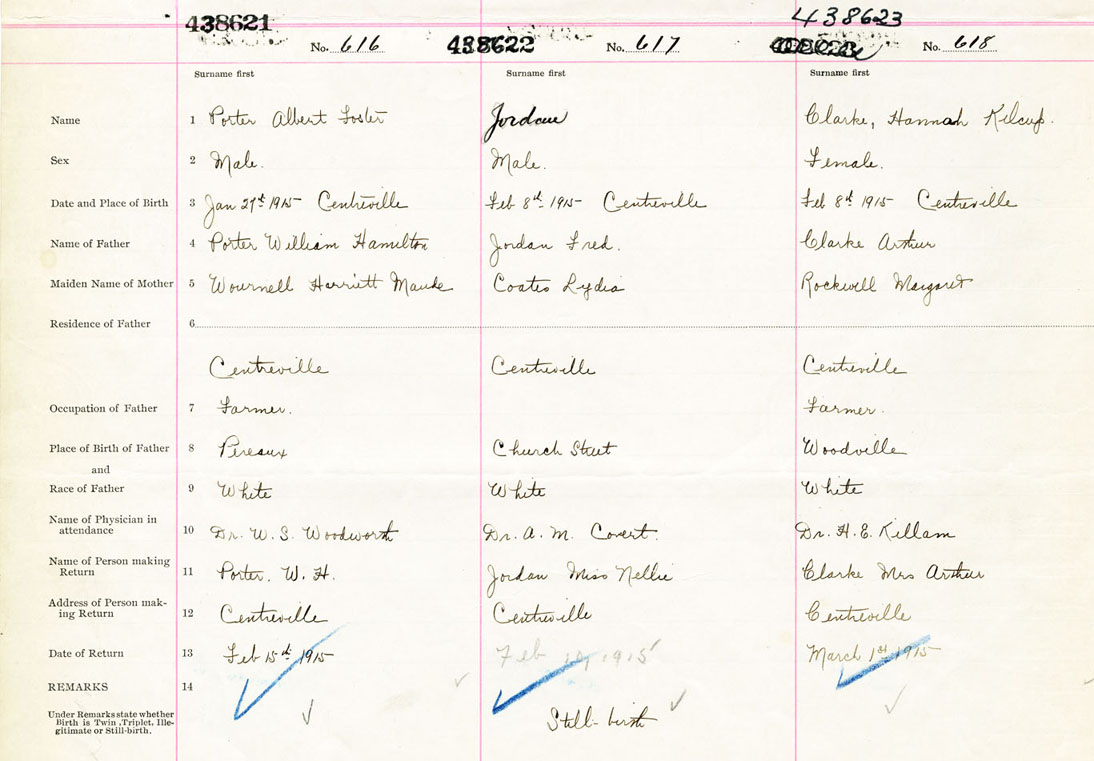 438621 438622 438623
No. 616 No. 617 No. 618
Surname first Surname first Surname first
Name 1 Porter Albert Foster Jordan Clarke, Hannah Kilcup.
Sex 2 Male. Male. Female.
Date and Place of Birth 3 Jan 27th 1915 Centreville Feb 8th 1915 Centreville Feb 8th 1915 Centreville
Name of Father 4 Porter William Hamilton Jordan Fred. Clarke Arthur
Maiden Name of Mother 5 Wournell Harriett Maude Coates Lydia Rockwell Margaret
Residence of Father 6
Centreville Centreville Centreville
Occupation of Father 7 Farmer. Farmer.
Place of Birth of Father 8 Pereaux Church Street Woodville
and
Race of Father 9 White White White
Name of Physician in
attendance 10 Dr. W. S. Woodworth Dr. A. M. Covert. Dr. H. E. Killam
Name of Person making
Return 11 Porter. W. H. Jordan Miss Nellie Clarke Mrs Arthur
Address of Person mak-
ing Return 12 Centreville Centreville Centreville
Date of Return 13 Feb 15th 1915 Feb 1915 March 1st 1915
REMARKS 14
Under Remarks state whether
Birth is Twin, Triplet, Ille-
gitimate or Still-birth.
Still-birth